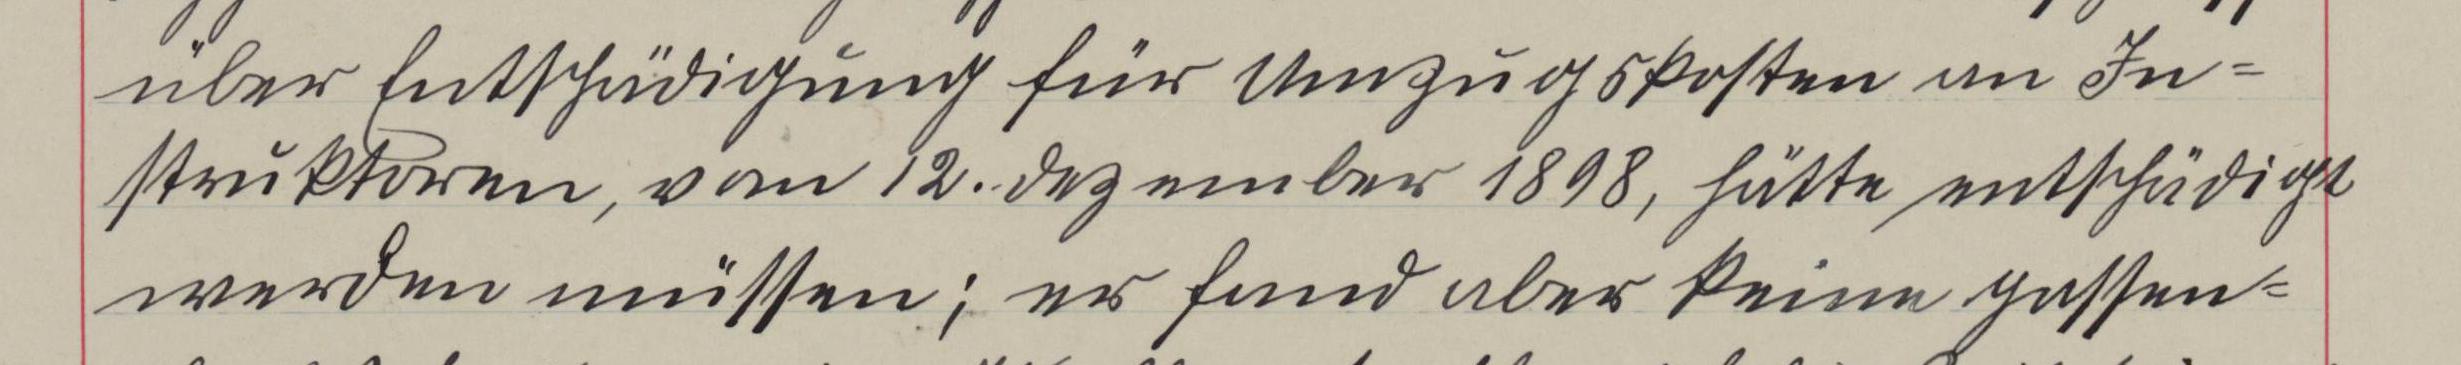 über Entschädigung für Umzugskosten an In=
struktoren, vom 12. Dezember 1898, hätte entschädigt
werden müssen; er fand aber keine passen=